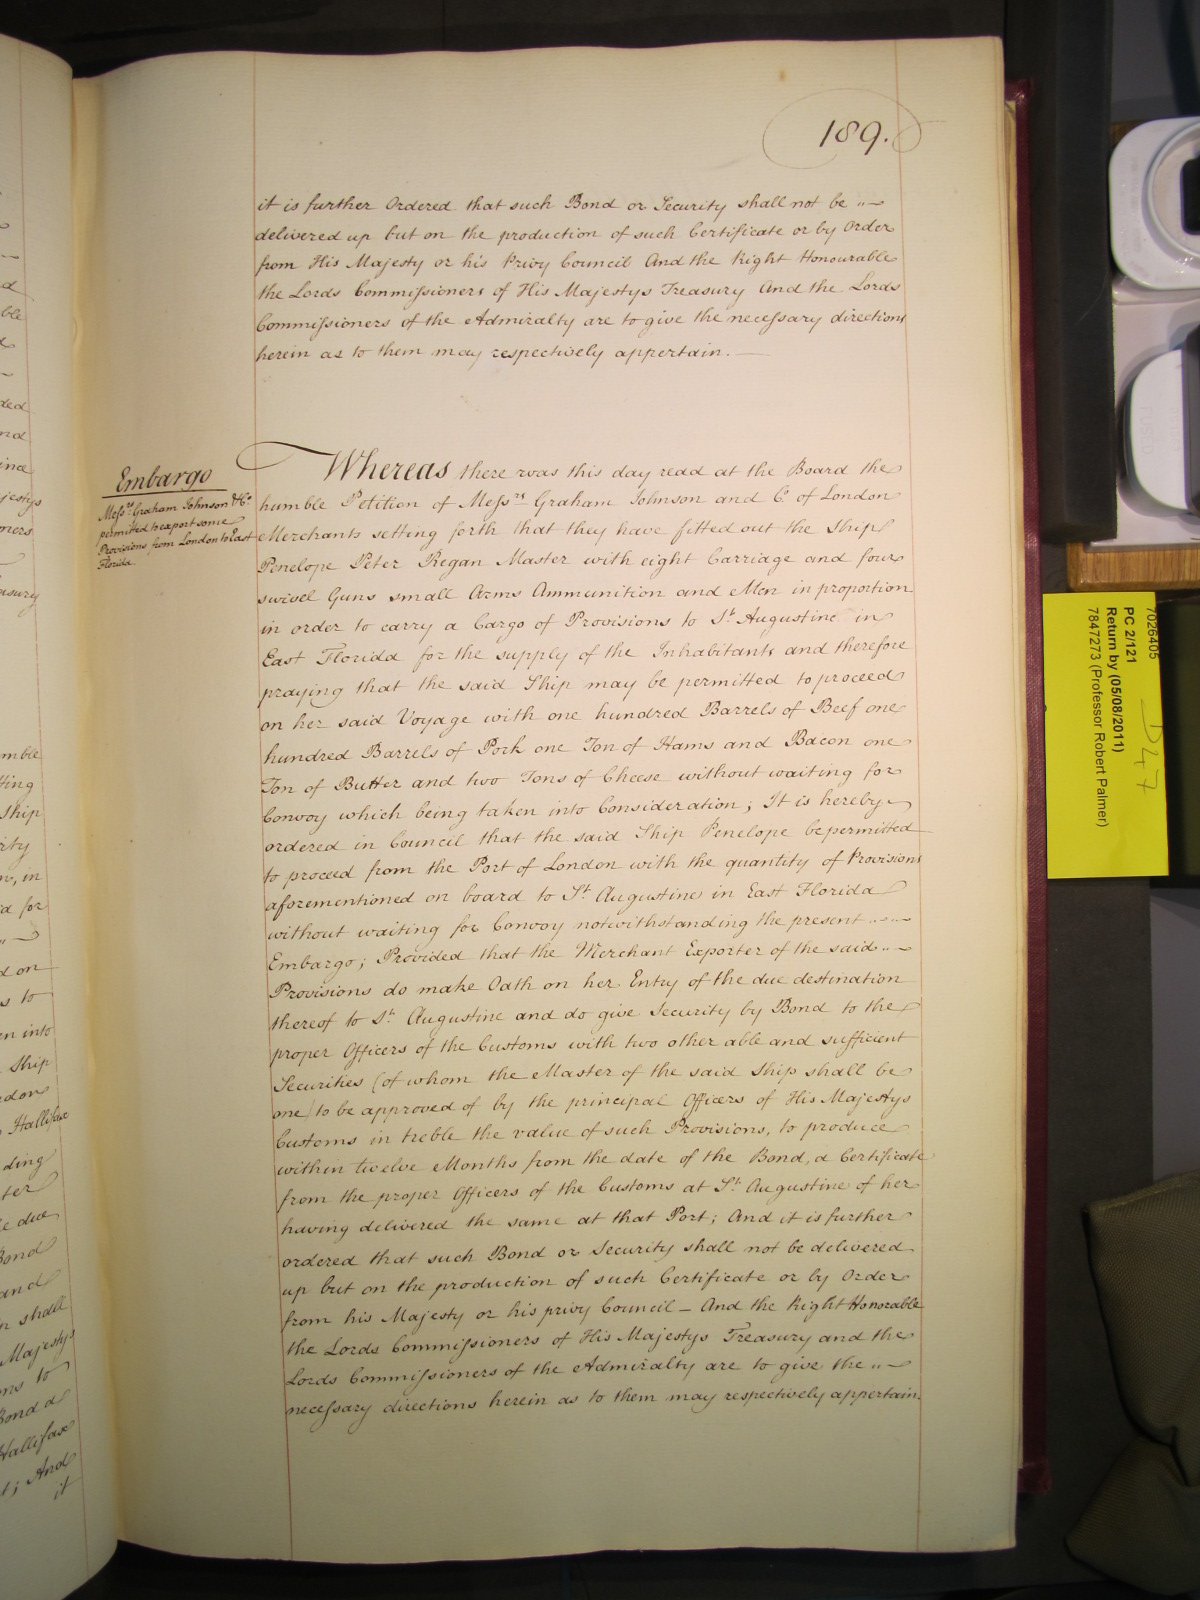 189.
it is further Ordered that such Bond or Security shall not be
delivered up but on the production of such Certificate or by Order
from His Majesty or his Privy Council And the Right Honourable
the Lords Commissioners of His Majestys Treasury And the Lords
Commissioners of the Admiralty are to give the necessary directions
herein as to them may respectively appertain.
Embargo
Messrs. Graham Johnson & Co.
permitted to export some
Provisions from London to East
Florida.
Whereas there was this day read at the Board the
humble Petition of Messrs. Graham Johnson and Co. of London
Merchants setting forth that they have fitted out the Ship
Penelope Peter Regan Master with eight Carriage and four
swivel Guns small Arms Ammunition and Men in proportion
in order to carry a Cargo of Provisions to St. Augustine in
East Florida for the supply of the Inhabitants and therefore
praying that the said Ship may be permitted to proceed
on her said Voyage with one hundred Barrels of Beef one
hundred Barrels of Pork one Ton of Hams and Bacon one
Ton of Butter and two Tons of Cheese without waiting for
Convoy which being taken into Consideration; It is hereby
ordered in Council that the said Ship Penelope be permitted
to proceed from the Port of London with the quantity of Provisions
aforementioned on board to St. Augustine in East Florida
without waiting for Convoy notwithstanding the present
Embargo; Provided that the Merchant Exporter of the said
Provisions do make Oath on her Entry of the due destination
thereof to St. Augustine and do give Security by Bond to the
proper Officers of the Customs with two other able and sufficient
Securities (of whom the Master of the said Ship shall be
one) to be approved of by the principal Officers of His Majestys
Customs in treble the value of such Provisions, to produce
within twelve Months from the date of the Bond, a Certificate
from the proper Officers of the Customs at St. Augustine of her
having delivered the same at that Port; And it is further
ordered that such Bond or Security shall not be delivered
up but on the production of such Certificate or by Order
from his Majesty or his privy Council – And the Right Honorable
the Lords Commissioners of His Majestys Treasury and the
Lords Commissioners of the Admiralty are to give the
necessary directions herein as to them may respectively appertain.
7026405
PC 2/121
Return by (05/08/2011)
7847273 (Professor Robert Palmer)
D47